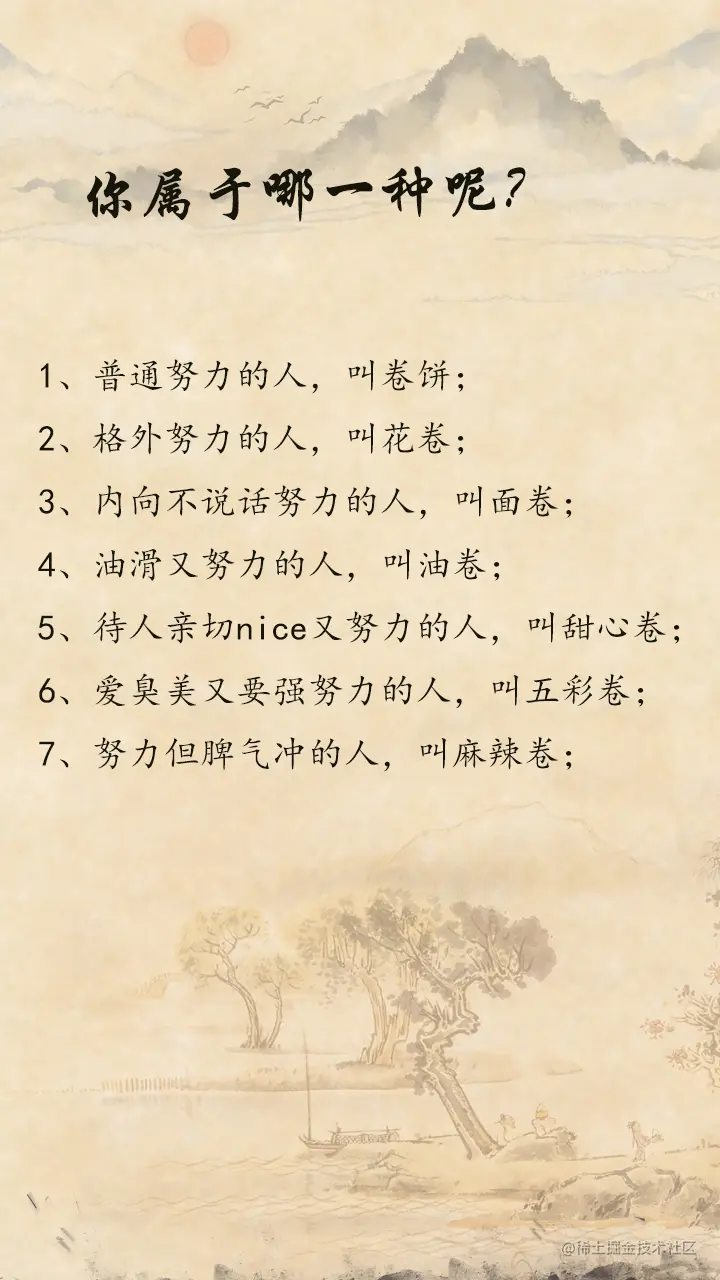 你属于哪一种呢？
1、普通努力的人，叫卷饼；
2、格外努力的人，叫花卷；
3、内向不说话努力的人，叫面卷；
4、油滑又努力的人，叫油卷；
5、待人亲切nice又努力的人，叫甜心卷；
6、爱臭美又要强努力的人，叫五彩卷；
7、努力但脾气冲的人，叫麻辣卷；
@稀土掘金技术社区